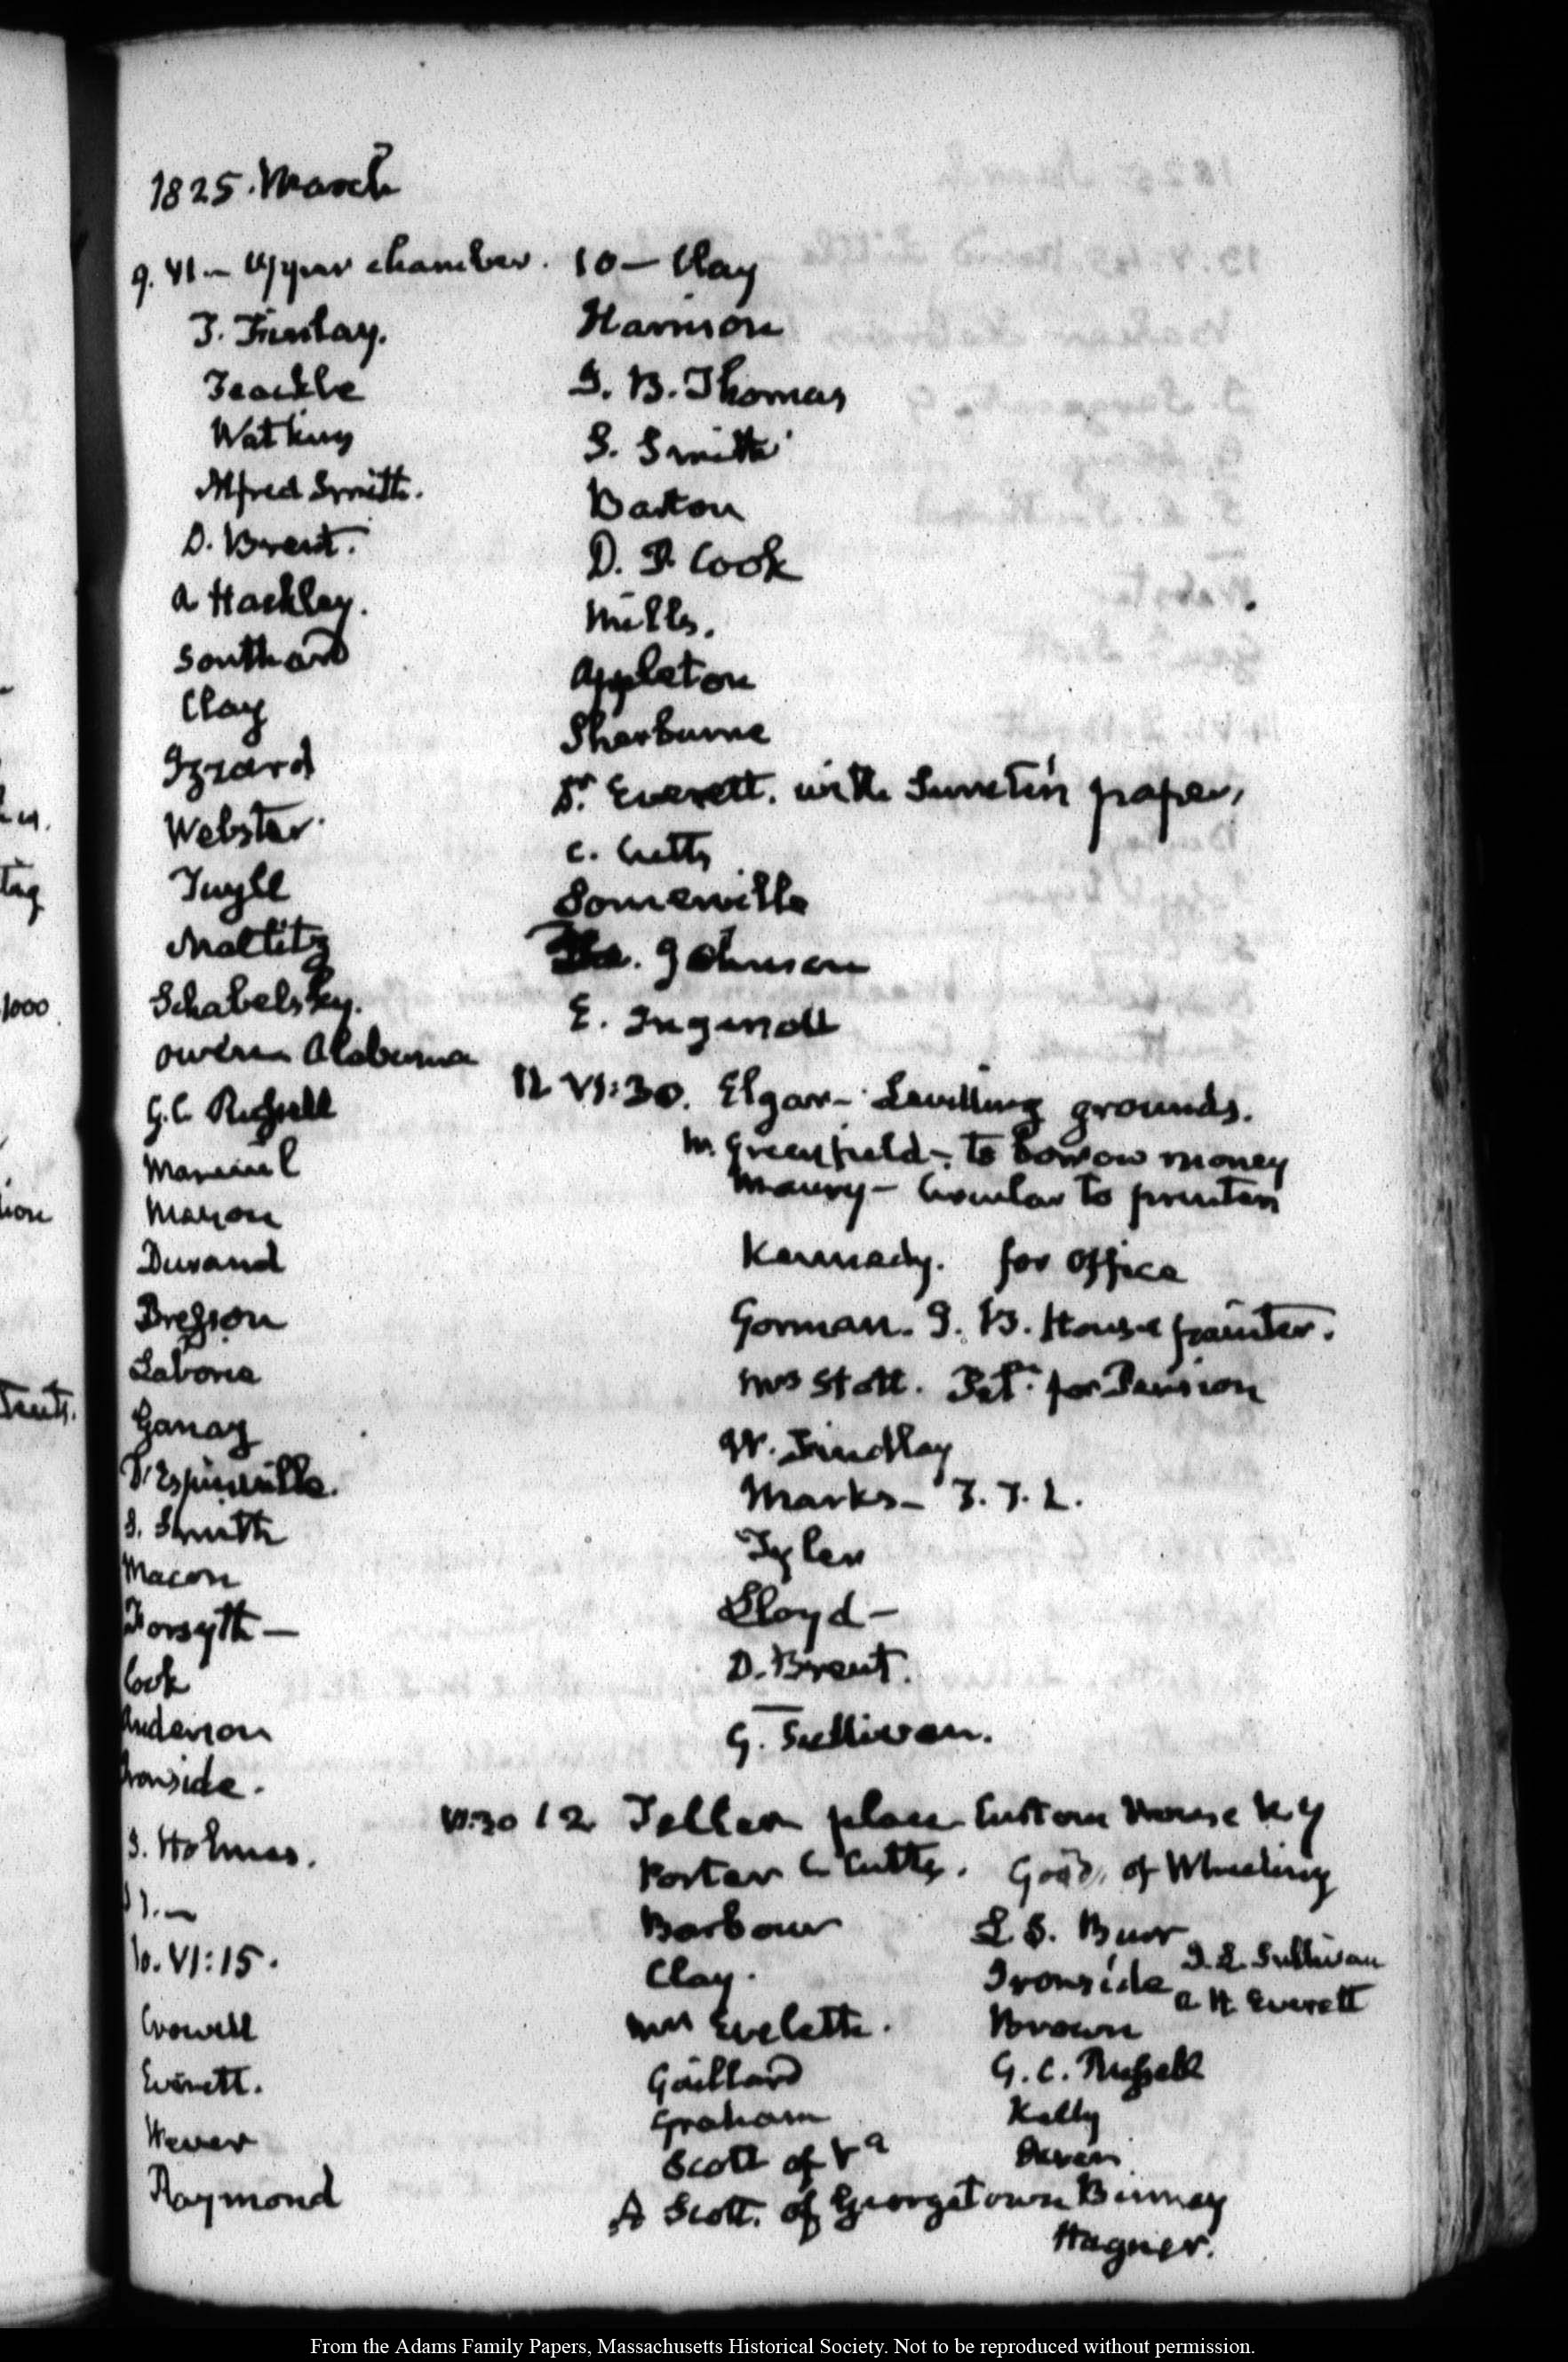 1825. March
9. VI - Upper chamber.
J. Finlay.
Teackle
Watkins
Alfred Smith.
D. Brent.
A Hackley.
Southard
Clay
Izzard
Webster
Tuyll
Maltitz
Schabelsky.
Owen Alabama
G. C. Russell
Mareuil
Mayon
Durand
Bresson
Laborie
Ganay
D'Espinville.
S. Smith
Macon
Forsyth —
Cook
Anderson
Ironside.
J. Holmes.
10. VI:15.
Crowell
Everett.
Wever
Raymond
10 — Clay
Harrison
J. B. Thomas
S. Smith
Barton
D. P. Cook
Mills.
Appleton
Sherburne
Dr. Everett. with papers
C. Cutts
Somerville
Johnson
E. Ingersoll
11 VI:30. Elgar - Levelling grounds.
M. Greenfield - to borrow money
Maury - Circular to printers
Kennedy. for Office
Gorman. J. B. House painter.
Mrs Stott. Petn. for Pension
W. Findlay
Marks - T. J. L.
Tyler
Lloyd —
D. Brent.
G. Sullivan.
VI:30 12 Teller place Custom House N. Y
Porter C. Cutts. of Wheeling
Barbour L S. Burr J. L. Sullivan
Clay. Ironside A H Everett
Mrs Eveleth. Brown
Gaillard G. C. Russell
Graham Kelly
Scott of Va
A Scott. of Georgetown Binney
Hagner.